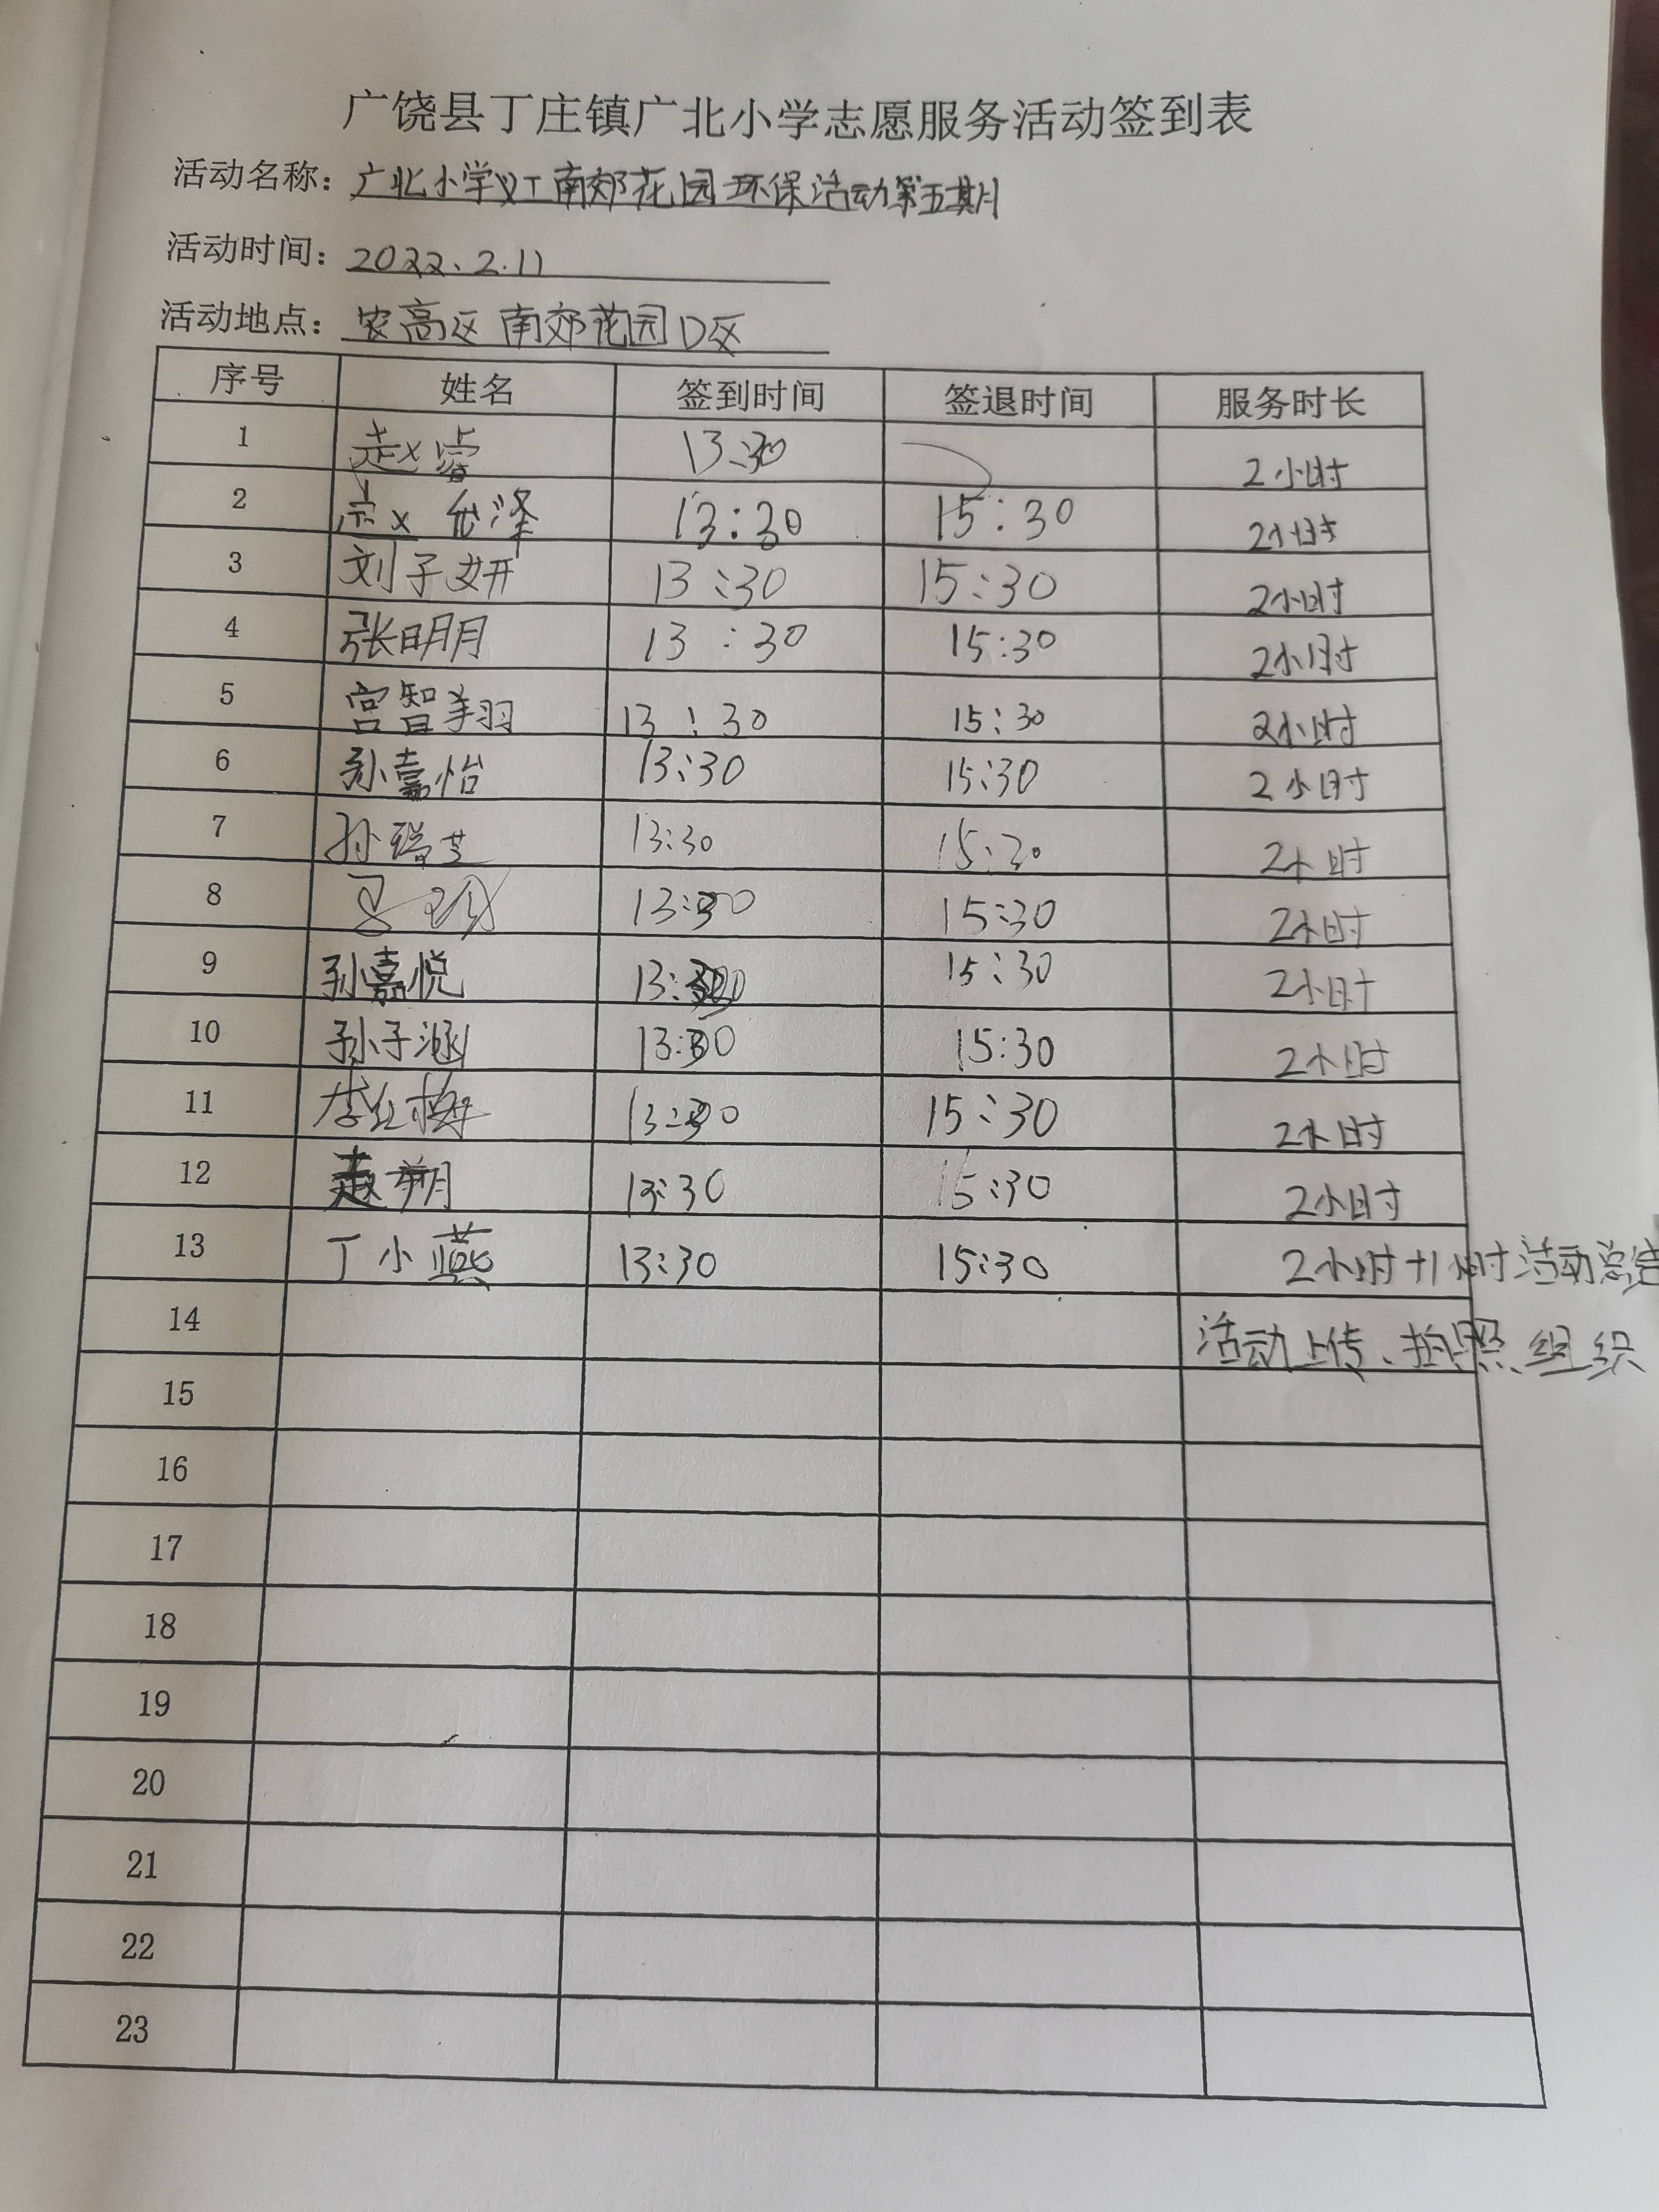 广饶县丁庄镇广北小学志愿服务活动签到表
活动名称：广北小学义工南郊花园环保活动第五期
活动时间：2022.2.11
活动地点：农高区南郊花园D区
序号 姓名 签到时间 签退时间 服务时长
1 赵睿 13:30 2小时
2 13:30 15:30 2小时
3 刘子妍 13:30 15:30 2小时
4 张明月 13:30 15:30 2小时
5 宫智翔 13:30 15:30 2小时
6 孙嘉怡 13:30 15:30 2小时
7 孙瑞芝 13:30 15:30 2小时
8 13:30 15:30 2小时
9 孙嘉悦 13:30 15:30 2小时
10 孙子涵 13:30 15:30 2小时
11 李红梅 13:30 15:30 2小时
12 赵翔 13:30 15:30 2小时
13 丁小燕 13:30 15:30 2小时+1小时活动总结
14 活动上传、拍照、组织
15
16
17
18
19
20
21
22
23